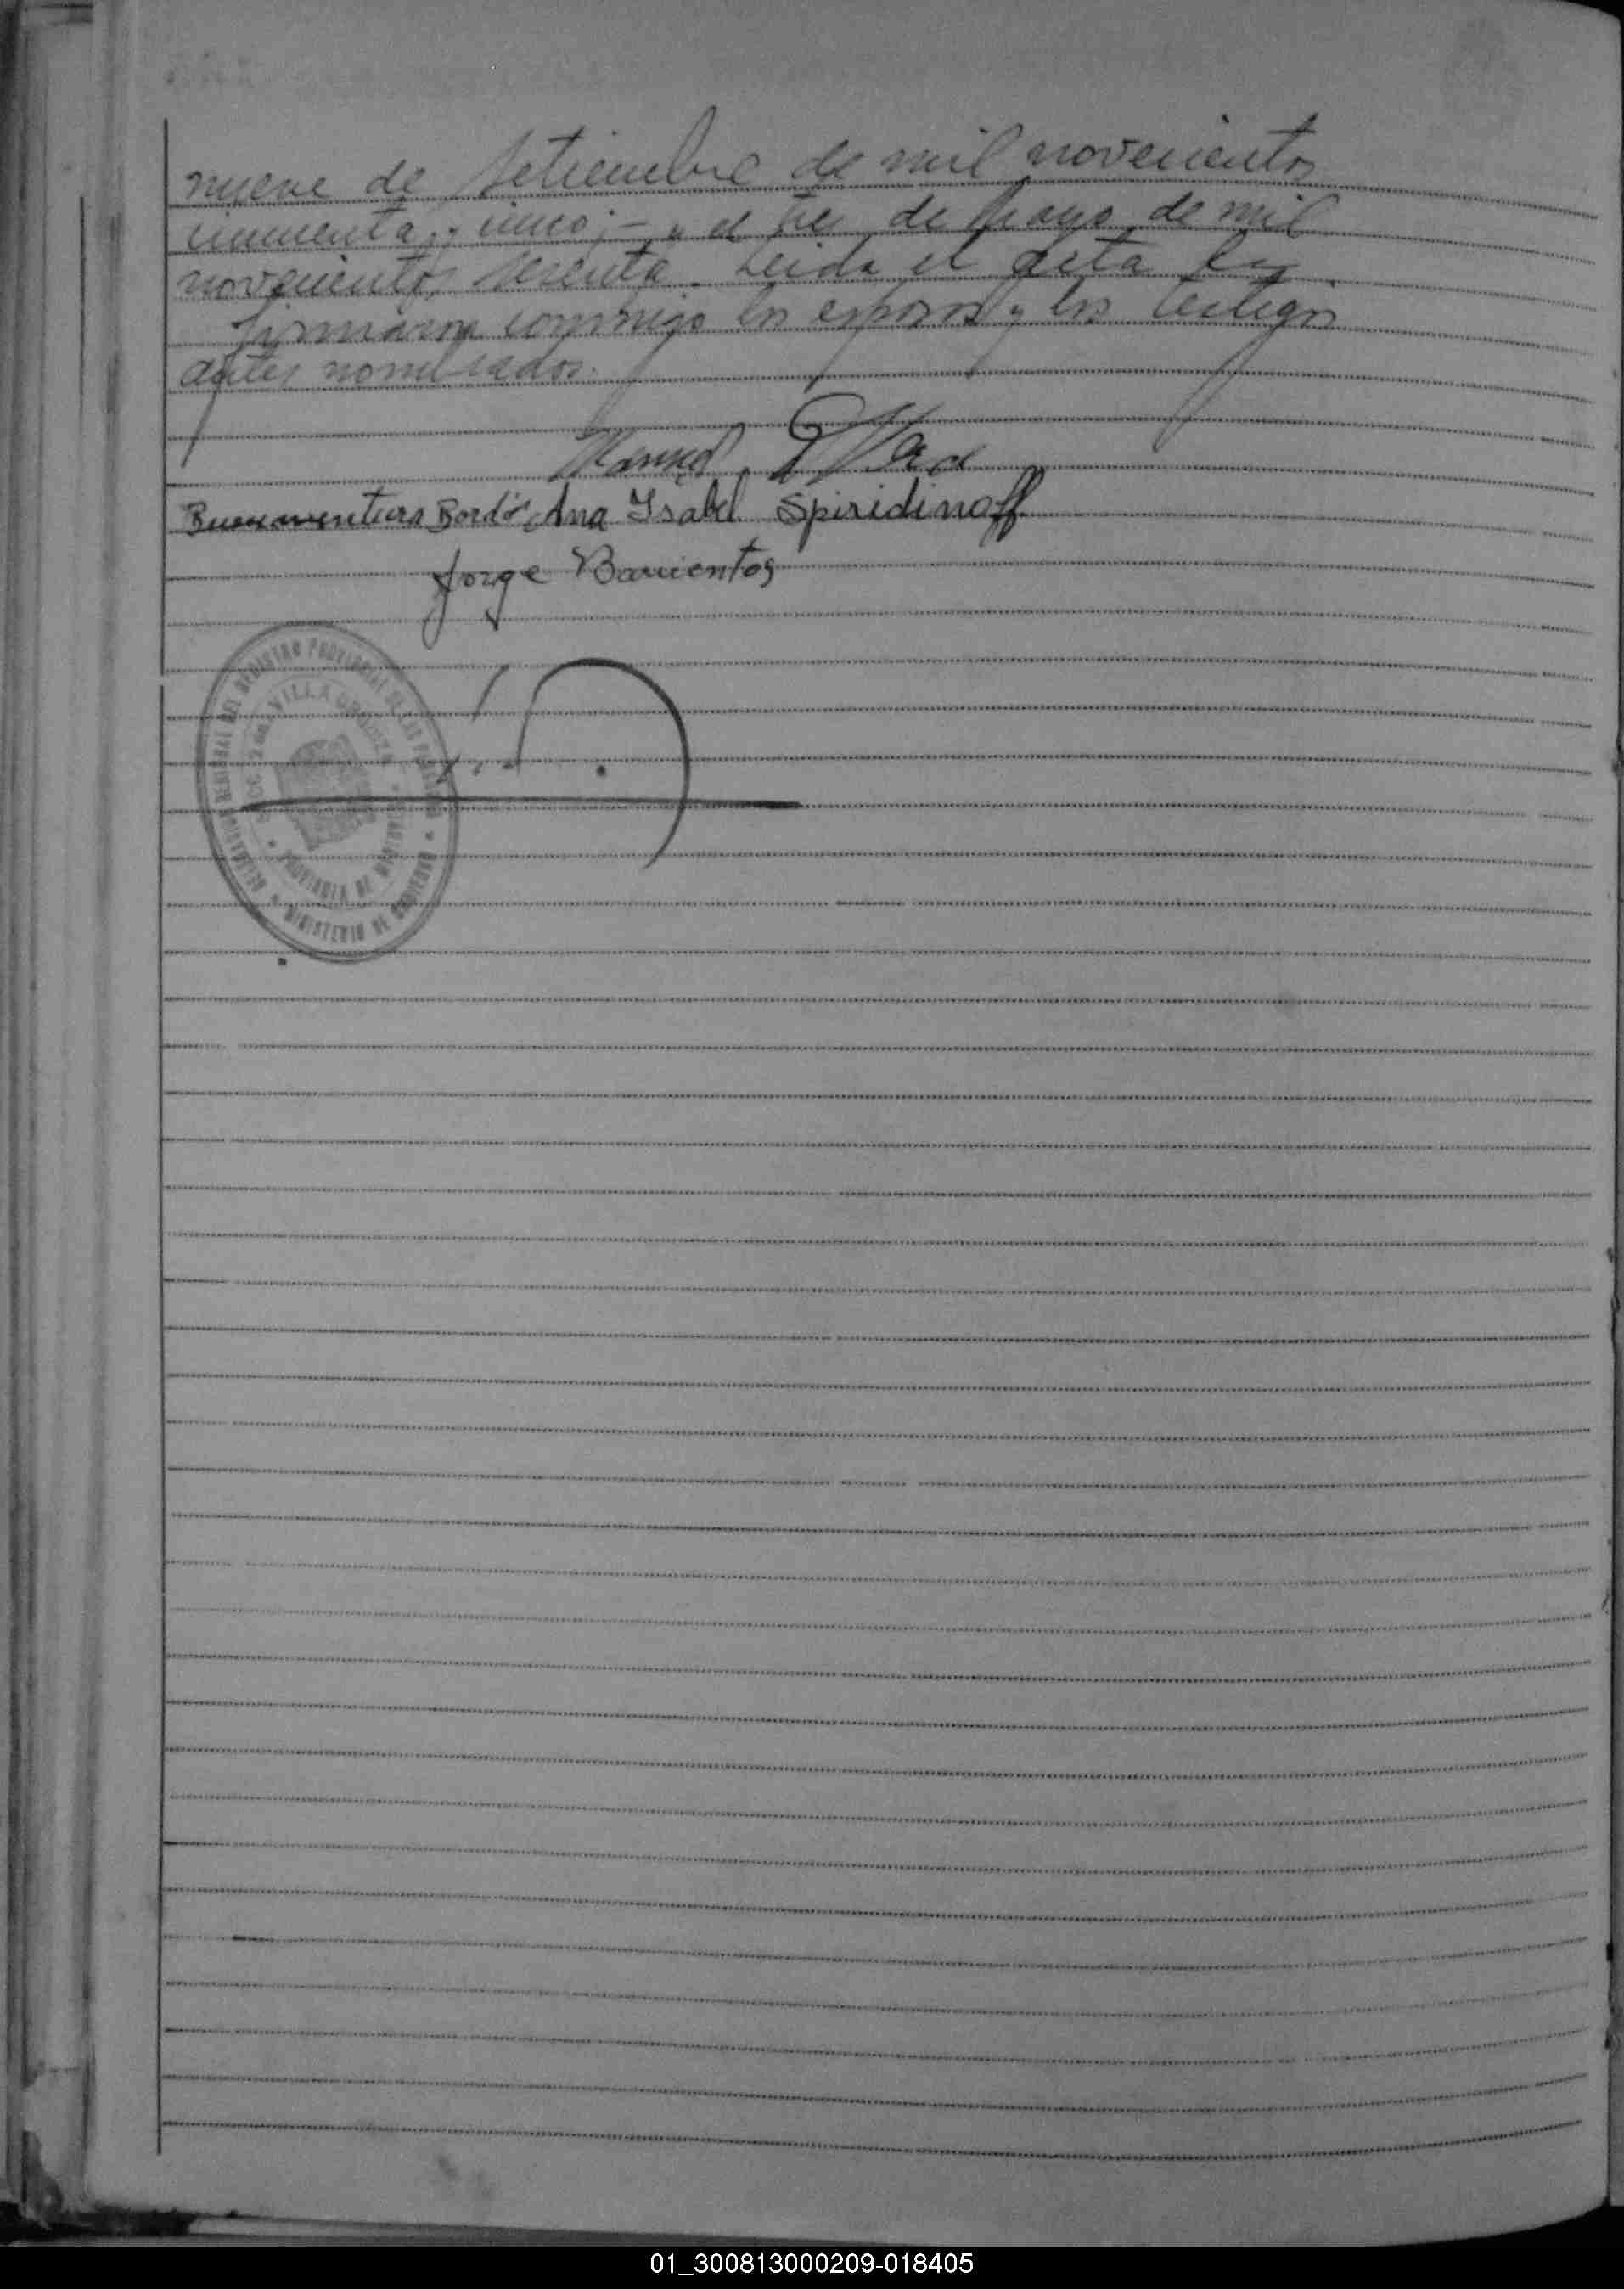 nueve de Setiembre de mil novecientos
cincuenta y cinco; - y el tres de Mayo de mil
novecientos sesenta. Leida el acta la
firmaron conmigo los esposos y los testigos
antes nombrados.
Manuel
Buenaventura Bordó Ana Isabel Spiridinoff
Jorge Barrientos
REGIONAL DEL REGISTRO PROVINCIAL DE LAS PERSONAS
VILLA
PROVINCIA DE
MINISTERIO DE GOBIERNO
01_300813000209-018405